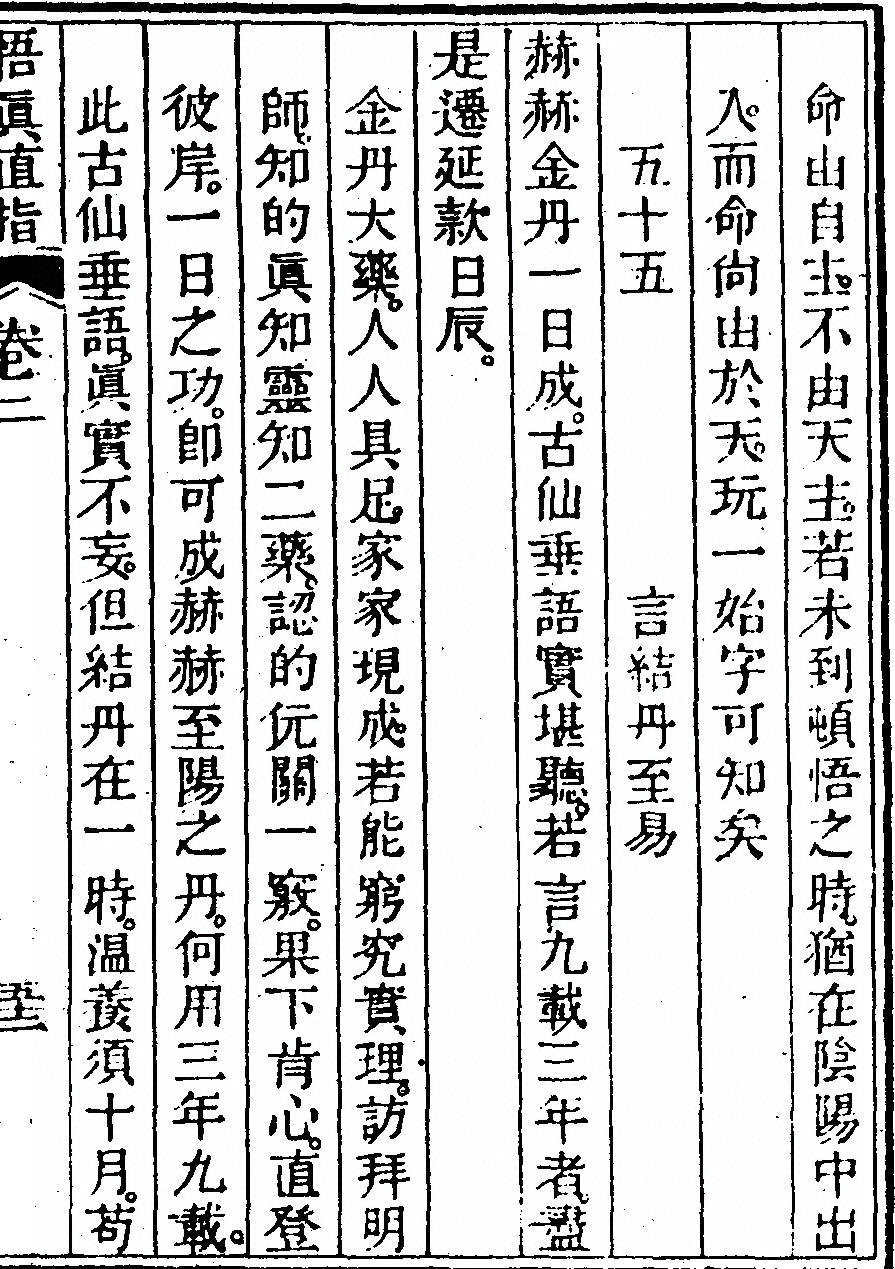 命由自主。不由天主。若未到頓悟之時。猶在陰陽中出
入。而命尙由於天。玩一始字可知矣
五十五　言結丹至易
赫赫金丹一日成。古仙垂語實堪聽。若言九載三年者。盡
是遷延款日辰。
金丹大藥。人人具足。家家現成。若能窮究實理。訪拜明
師。知的眞知靈知二藥、認的㐳關一竅。果下肯心。直登
彼岸。一日之功。卽可成赫赫至陽之丹。何用三年九載。
此古仙垂語。眞實不妄。但結丹在一時。温養須十月。苟
悟眞直指　卷二